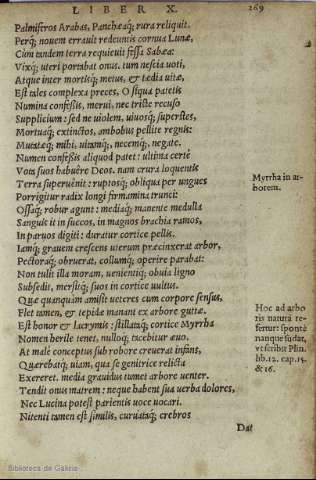 LIBER X. 269
Palmiferos Arabas, Panchæaq; rura reliquit.
Perq; nouem errauit redeuntis cornua Lunæ,
Cùm tandem terra requieuit fessa Sabæa:
Vixq; uteri portabat onus. tum nescia uoti,
Atque inter mortisq; metus, & tædia uitæ,
Est tales complexa preces, O siqua patetis
Numina confessis, merui, nec triste recuso
Supplicium: sed ne uiolem, uiuosq; superstes,
Mortuaq; extinctos, ambobus pellite regnis:
Mutatæq; mihi, uitamq;, necemq;, negate.
Numen confessis aliquod patet: ultima certè
Vota suos habuêre Deos. nam crura loquentis
Terra superuenit: ruptosq; obliqua per ungues
Porrigitur radix longi firmamina trunci:
Ossaq; robur agunt: mediaq; manente medulla
Sanguis it in succos, in magnos brachia ramos,
In paruos digiti: duratur cortice pellis.
Iamq; grauem crescens uterum præcinxerat arbor,
Pectoraq; obruerat, collumq; operire parabat:
Non tulit illa moram, uenientiq; obuia ligno
Subsedit, mersitq; suos in cortice uultus.
Quæ quanquam amisit ueteres cum corpore sensus,
Flet tamen, & tepidæ manant ex arbore guttæ.
Est honor & lacrymis: stillataq; cortice Myrrha
Nomen herile tenet, nulloq; tacebitur æuo.
At malè conceptus sub robore creuerat infans,
Quærebatq; uiam, qua se genitrice relicta
Exereret. media grauidus tumet arbore uenter.
Tendit onus matrem: neque habent sua uerba dolores,
Nec Lucina potest parientis uoce uocari.
Nitenti tamen est similis, curuataq; crebros
Dat
Myrrha in ar-
borem.
Hoc ad arbo
ris naturã re
fertur: spontè
nanque sudat,
vt scribit Plin.
lib. 12. cap. 15.
& 16.
Biblioteca de Galicia